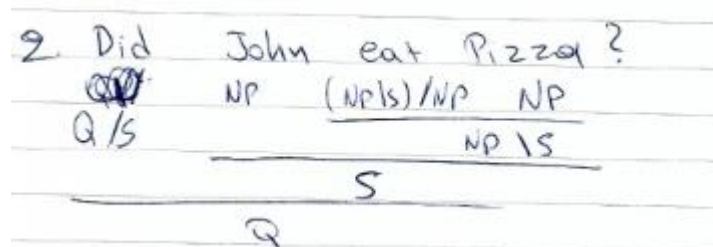 2. Did John eat Pizza?
NP (NP\S)/NP NP
Q/S NP\S
S
Q